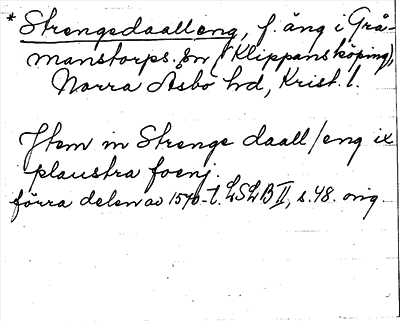 * Strengedaalleng, f. äng i Grå-
manstorps sn (Klippans köping),
Norra Åsbo hd, Krist. l.
Item in Strenge daall/eng ix
plaustra foenj.
förra delen av 1570-t. LSLB II, s. 48. orig.